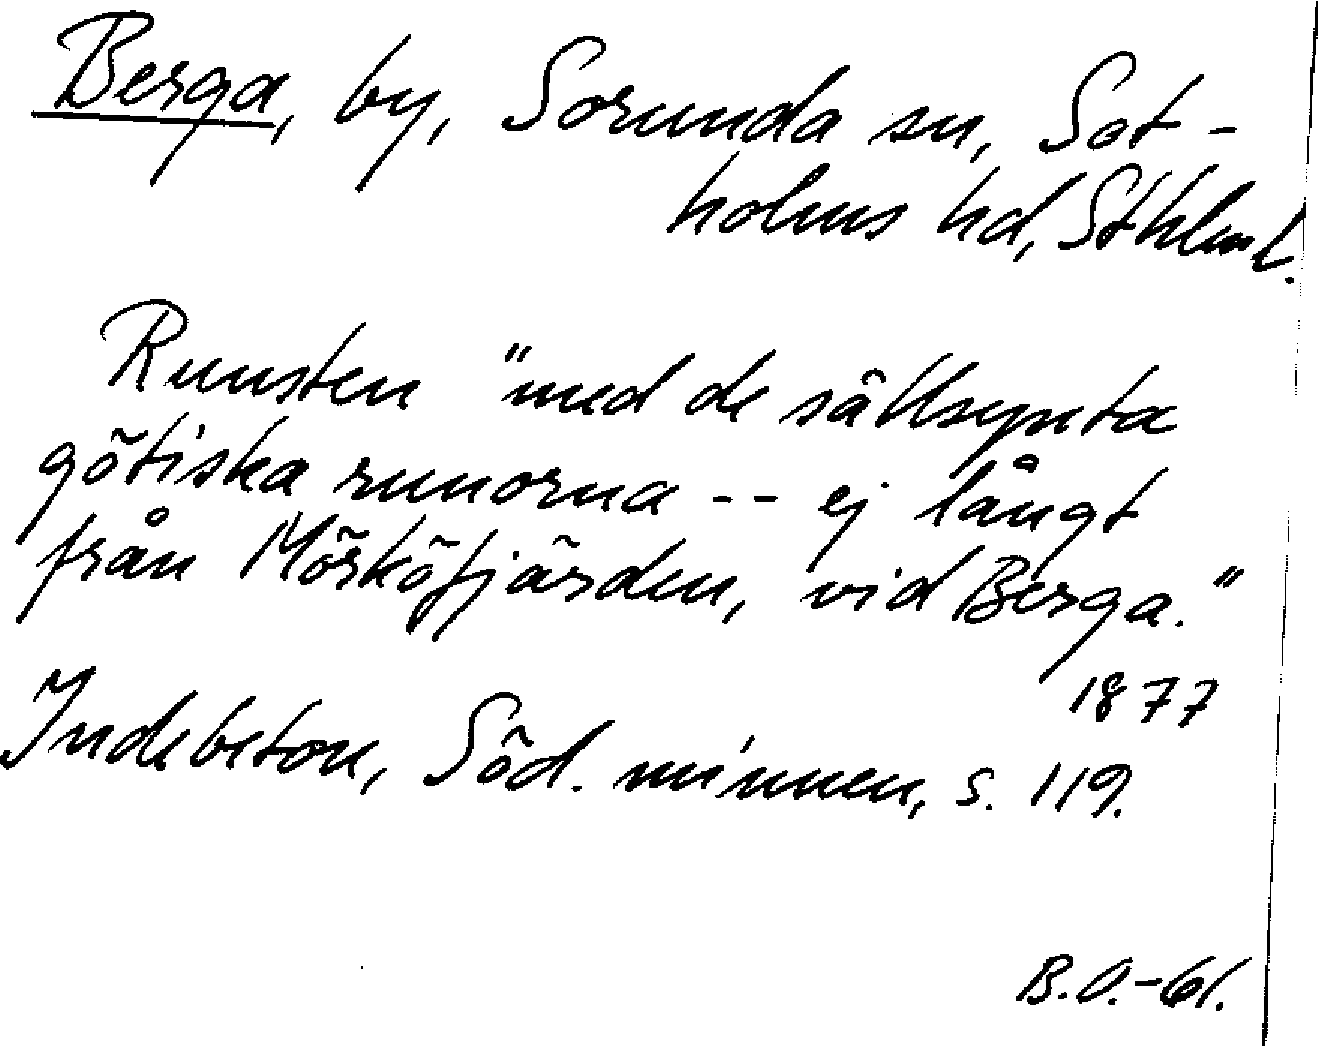 Berga, by, Sorunda sn, Sot-
holms hd, Sthlms l.
Runsten "med de sällsynta
götiska runorna -- ej långt
från Mörköfjärden, vid Berga."
1877
Indebetou, Söd. minnen, s. 119.
B.O.-61.